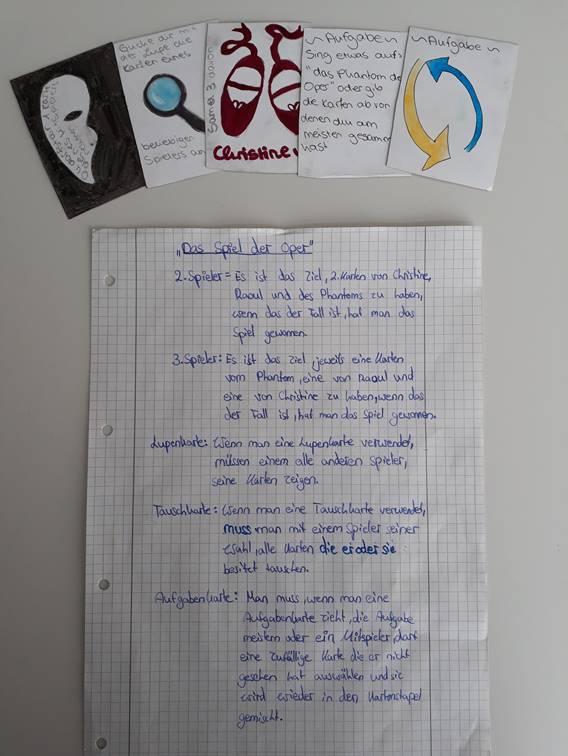 Suche dir mit
der Lupe die
Karten eines
beliebigen
Spielers an
Samml 3 davon
Christine
~Aufgabe~
Sing etwas aufs
"das Phantom de
Oper" oder gib
die Karten ab von
denen du am
meisten gesamm
hast
~Aufgabe~
"Das Spiel der Oper"
2.Spieler= Es ist das Ziel, 2.Karten von Christine,
Raoul und des Phantoms zu haben,
wenn das der Fall ist, hat man das
Spiel gewonnen.
3.Spieler: Es ist das Ziel, jeweils eine Karten
vom Phantom, eine von Raoul und
eine von Christine zu haben, wenn das
der Fall ist, hat man das Spiel gewonnen.
Lupenkarte: Wenn man eine Lupenkarte verwendet,
müssen einem alle anderen Spieler,
seine Karten zeigen.
Tauschkarte: Wenn man eine Tauschkarte verwendet,
muss man mit einem Spieler seiner
Wahl, alle Karten die er oder sie
besitzt tauschen.
Aufgabenkarte: Man muss, wenn man eine
Aufgabenkarte zieht, die Aufgabe
meistern oder ein Mitspieler, darf
eine zufällige Karte die er nicht
gesehen hat auswählen und sie
wird wieder in den Kartenstapel
gemischt.